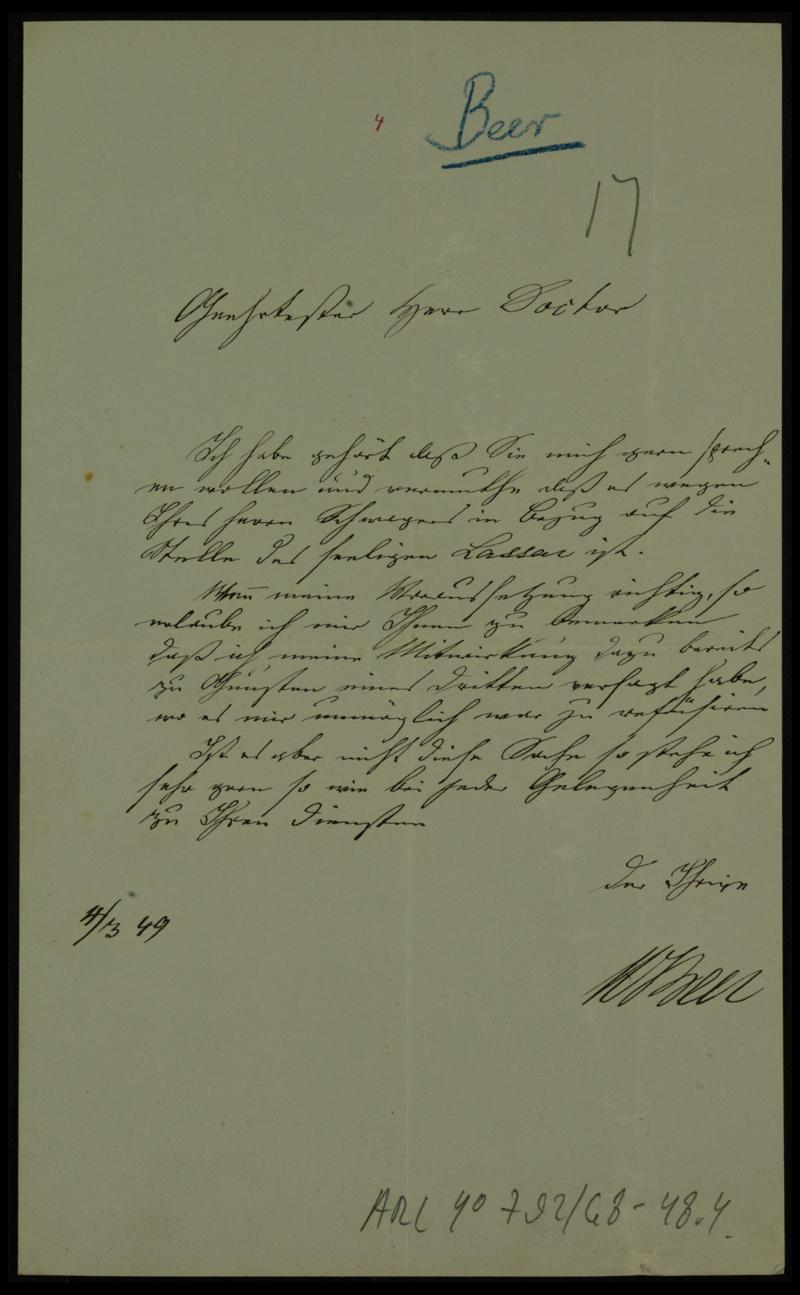 4
Beer
17
Geehrtester Herr Doctor
Ich habe gehört daß Sie mich gern sprech-
en wollen und vermuthe daß es wegen
Ihres Herrn Schwagers in Bezug auf die
Stelle des seeligen Lassar ist.
meine Voraussetzung richtig, so
erlaube ich mir Ihnen zu bemerken
daß ich meine Mitwirkung dazu bereits
zu Gunsten eines Dritten versagt habe,
wo es mir unmöglich war zu refüsiren
Ist es aber nicht diese Sache so stehe ich
sehr gern so wie bei jeder Gelegenheit
zu Ihren Diensten
Der Ihrige
4/3 49
Beer
ARC 40 792/68-48.4.